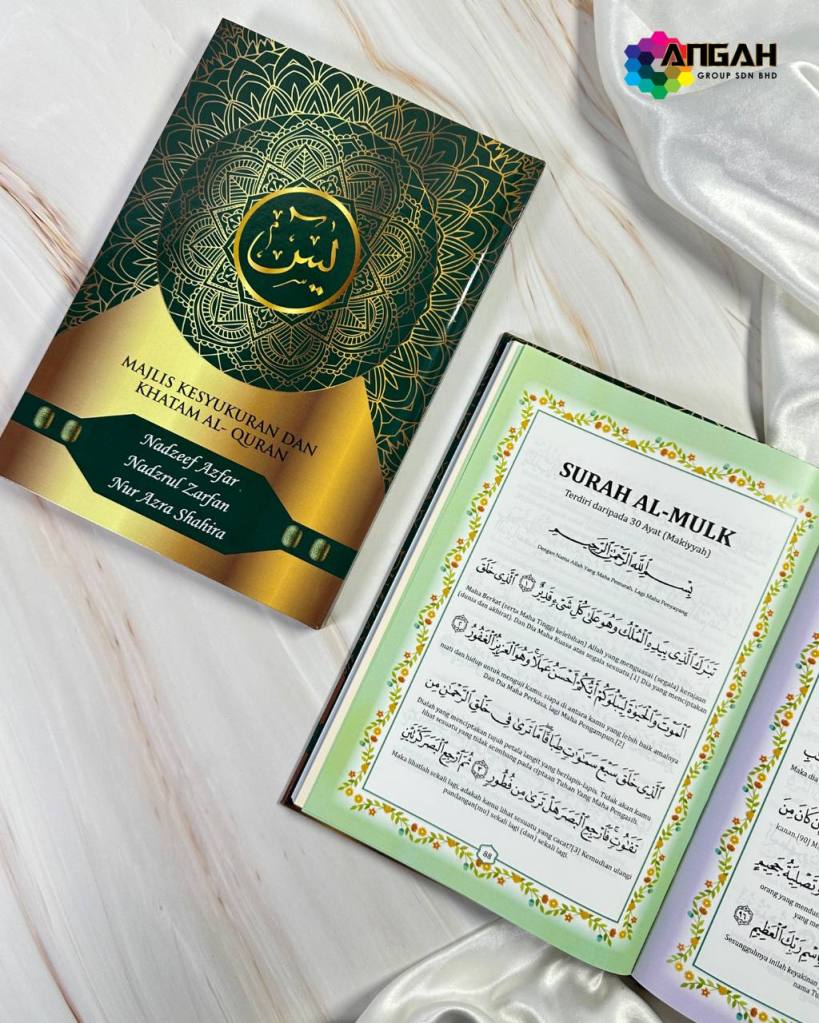 ANGAH
GROUP SDN BHD
يس
MAJLIS KESYUKURAN DAN
KHATAM AL- QURAN
Nadzeef Azfar
Nadzrul Zarfan
Nur Azra Shahira
SURAH AL-MULK
Terdiri daripada 30 Ayat (Makiyyah)
بِسْمِ اللَّهِ الرَّحْمَٰنِ الرَّحِيمِ
Dengan Nama Allah Yang Maha Pemurah, Lagi Maha Penyayang
تَبَٰرَكَ ٱلَّذِى بِيَدِهِ ٱلْمُلْكُ وَهُوَ عَلَىٰ كُلِّ شَىْءٍ قَدِيرٌ ١ ٱلَّذِى خَلَقَ
Maha Berkat (serta Maha Tinggi kelebihan) Allah yang menguasai (segala) kerajaan
(dunia dan akhirat). Dan Dia Maha Kuasa atas segala sesuatu.[1] Dia yang menciptakan
ٱلْمَوْتَ وَٱلْحَيَوٰةَ لِيَبْلُوَكُمْ أَيُّكُمْ أَحْسَنُ عَمَلًا ۚ وَهُوَ ٱلْعَزِيزُ ٱلْغَفُورُ ٢
mati dan hidup untuk menguji kamu, siapa di antara kamu yang lebih baik amalnya
Dan Dia Maha Perkasa, lagi Maha Pengampun.[2]
ٱلَّذِى خَلَقَ سَبْعَ سَمَٰوَٰتٍ طِبَاقًا ۖ مَّا تَرَىٰ فِى خَلْقِ ٱلرَّحْمَٰنِ مِن
Dialah yang menciptakan tujuh petala langit yang berlapis-lapis. Tidak akan kamu
lihat sesuatu yang tidak seimbang pada ciptaan Tuhan Yang Maha Pengasih.
تَفَٰوُتٍ ۖ فَٱرْجِعِ ٱلْبَصَرَ هَلْ تَرَىٰ مِن فُطُورٍ ٣ ثُمَّ ٱرْجِعِ ٱلْبَصَرَ كَرَّتَيْنِ
Maka lihatlah sekali lagi, adakah kamu lihat sesuatu yang cacat?[3] Kemudian ulangi
pandangan(mu) sekali lagi (dan) sekali lagi,
88
Maka dia
إِن كَانَ مِنَ
kanan.[90] M
وَتَصْلِيَةُ جَحِيمٍ
orang yang mendus
yang me
٩٦
بِٱسْمِ رَبِّكَ ٱلْعَظِيمِ
Sesungguhnya inilah keyakinan
nama Tu